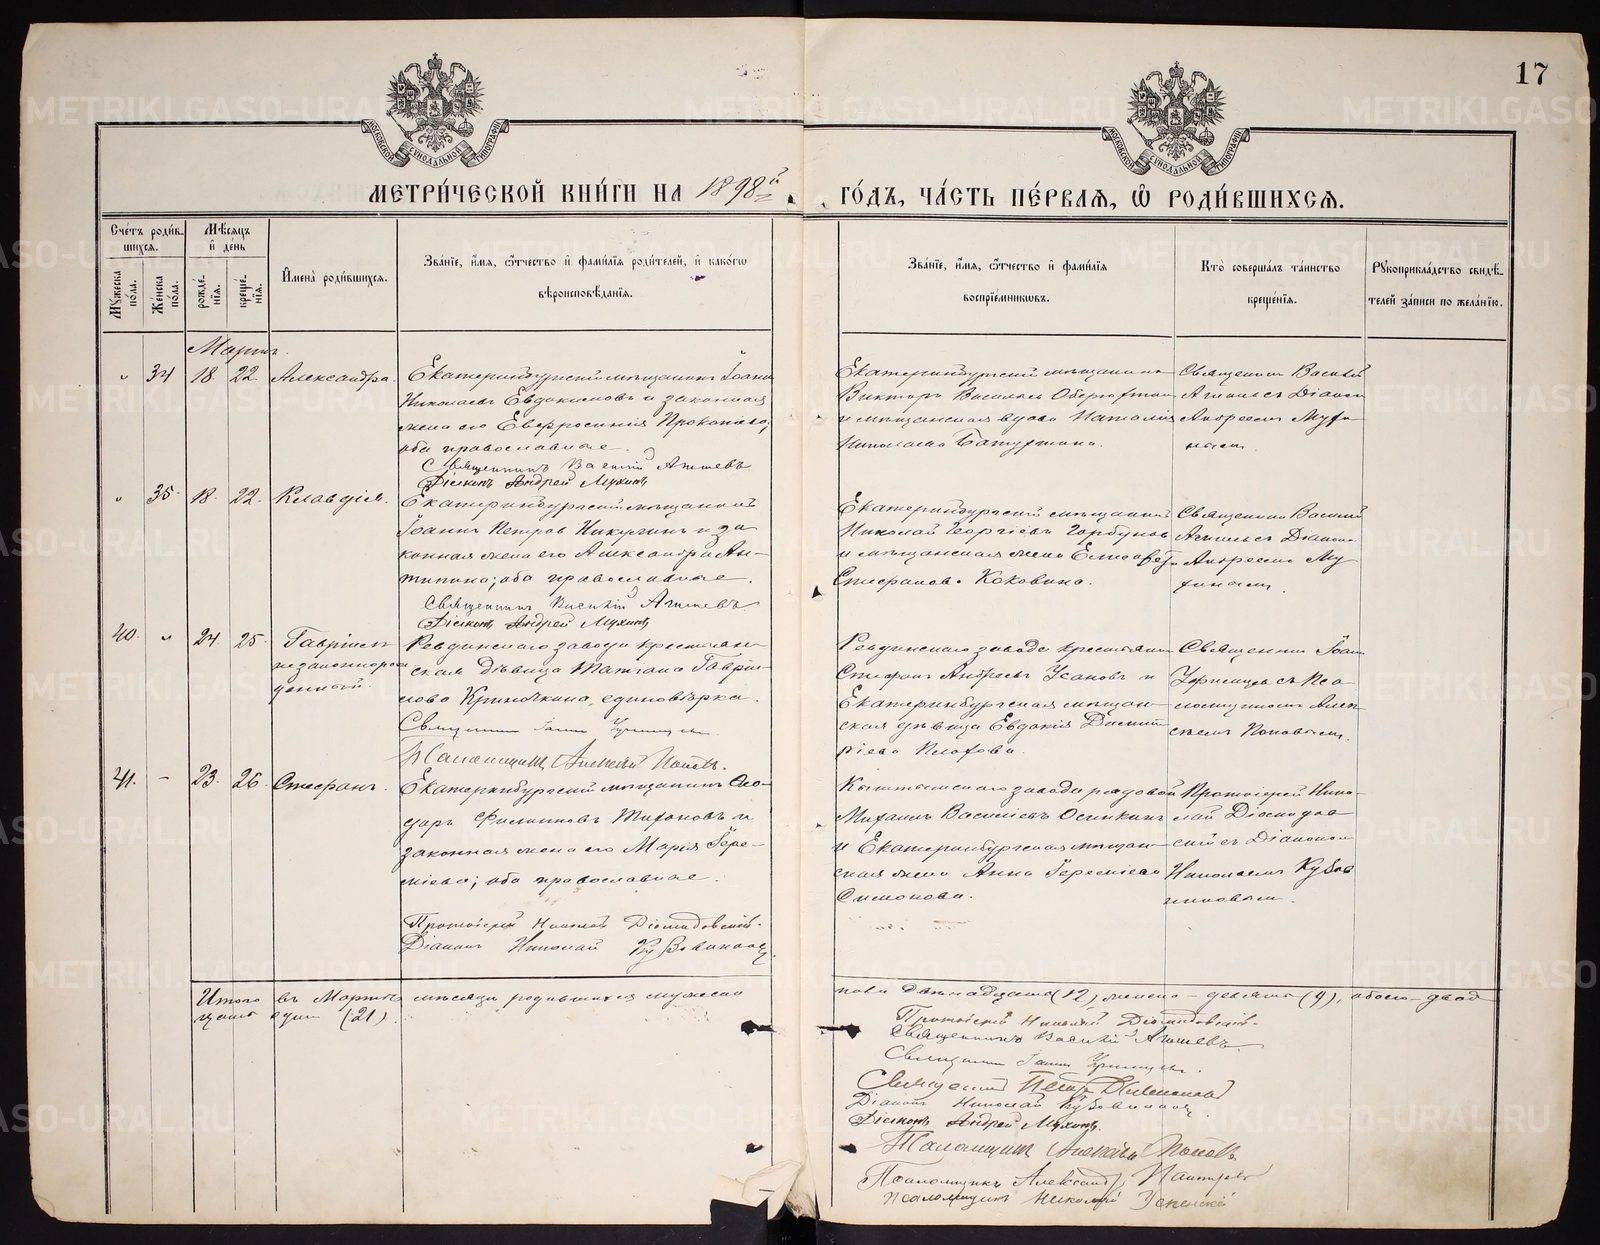 17
МОСКОВСКОЙ СѴНОДАЛЬНОЙ ТИПОГРАФІИ
МОСКОВСКОЙ СѴНОДАЛЬНОЙ ТИПОГРАФІИ
МЕТРИ́ЧЕСКОЙ КНИ́ГИ НА 1898й
ГО́ДЪ, ЧА́СТЬ ПЕ́РВАѦ, Ѡ҆ РОДИ́ВШИХСѦ.
Сче́тъ роди́в-
шихсѧ.
Мꙋ́жеска по́ла.
Же́нска по́ла.
Мѣ́сѧцъ
и҆ де́нь
рожде́-
нїѧ.
креще́-
нїѧ.
И҆мена̀ роди́вшихсѧ.
Зва́нїе, и҆́мѧ, ѻ҆́тчество и҆ фами́лїѧ роди́телей, и҆ како́гѡ
вѣроисповѣ́данїѧ.
Зва́нїе, и҆́мѧ, ѻ҆́тчество и҆ фами́лїѧ
воспрїе́мникѡвъ.
Кто̀ соверша́лъ та́инство
креще́нїѧ.
Рꙋкоприкла́дство свидѣ́-
телей за́писи по жела́нїю.
Мартъ.
" 34 18 22 Александра.
Екатеринбургскій мѣщанинъ Іоаннъ
Николаевъ Евдокимовъ и законная
жена его Евфросинія Прокопіева,
оба православные.
Священникъ Василій
Діаконъ Андрей Мухинъ
Екатеринбургскій мѣщанинъ
Викторъ Васильевъ
и мѣщанская вдова Наталія
Николаева Батурина.
Священникъ Василій
съ Діакон
Андреемъ Мухи
нымъ
" 35 18 22 Клавдія.
Екатеринбургскій мѣщанинъ
Іоаннъ Петровъ Никулинъ и за
конная жена его Александра Ан-
типина; оба православные.
Священникъ Василій
Діаконъ Андрей Мухинъ
Екатеринбургскій мѣщанинъ
Николай Георгіевъ Горбуновъ
и мѣщанская жена Елисавета
Стефанова Коковина.
Священникъ Василій
съ Діакон
Андреемъ Му
хинымъ
40 " 24 25 Гавріилъ
незаконнорож
денный.
Ревдинскаго завода крестьян-
ская дѣвица Татіана Гаврі-
лова единовѣрка.
Священникъ Іоаннъ
Псаломщикъ Алексѣй Поповъ.
Ревдинскаго завода крестьянин
Стефанъ Андреевъ Усановъ и
Екатеринбургская мѣщан-
ская дѣвица Евдокія Димит
ріева
Священникъ Іоан
съ Пса
ломщикомъ Алек
сѣемъ Поповымъ.
41. - 23 26 Стефанъ.
Екатеринбургскій мѣщанинъ Ѳео-
доръ Филипповъ Тихоновъ и
законная жена его Марія Іере-
міева; оба православные.
Протоіерей Николай Діомидовскій.
Діаконъ Николай
Кыштымскаго завода рядовой
Михаилъ Василіевъ Осинкинъ
и Екатеринбургская мѣщан-
ская жена Анна Іереміева
Симонова.
Протоіерей Нико-
лай Діомидов
скій съ Діакономъ
Николаемъ
Итого въ Мартѣ мѣсяцѣ родившихся мужеска
пола двѣнадцать (12), женска - девять (9), обоего - двад
цать одинъ (21).
Протоіерей Николай Діомидовскій.
Священникъ Василій
Священникъ Іоаннъ
Священникъ Петръ
Діаконъ Николай
Діаконъ Андрей Мухинъ.
Псаломщикъ Алексѣй Поповъ
Псаломщикъ Александръ
Псаломщикъ Николай Успенскій
METRIKI.GASO-URAL.RU